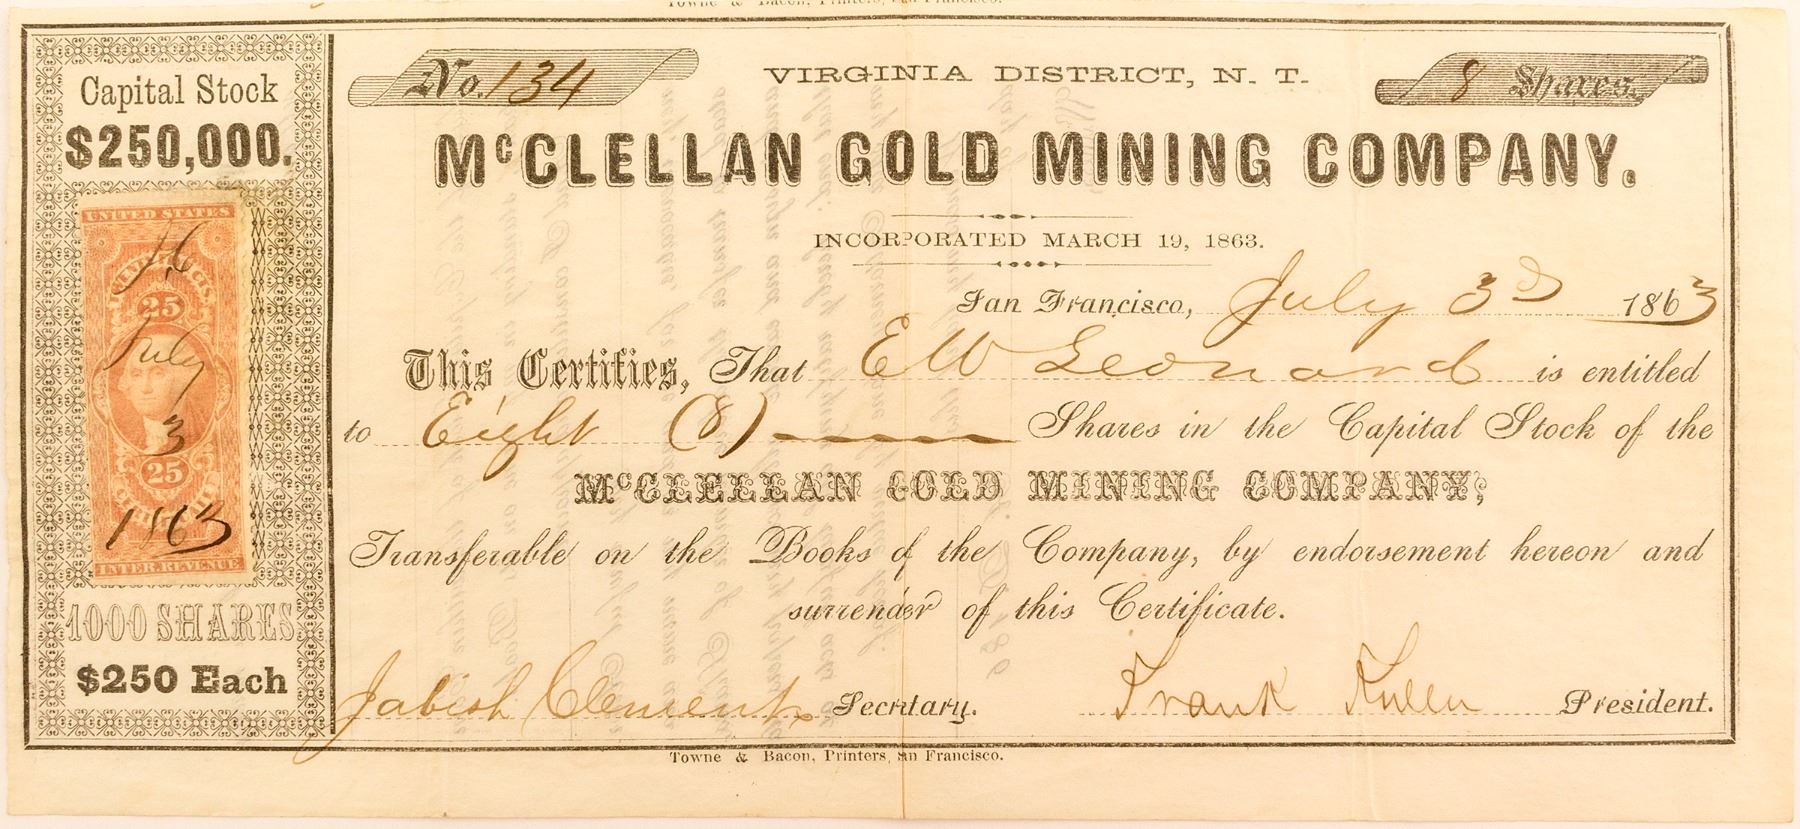 Towne & Bacon, Printers, San Francisco.
Capital Stock
$250,000.
UNITED STATES
25
25
INTER. REVENUE
July
3
1863
1000 SHARES
$250 Each
No. 134
VIRGINIA DISTRICT, N. T.
8 Shares.
McCLELLAN GOLD MINING COMPANY.
INCORPORATED MARCH 19, 1863.
San Francisco, July 3d 1863
This Certifies, That E W Leonard is entitled
to Eight (8) Shares in the Capital Stock of the
McCLELLAN GOLD MINING COMPANY;
Transferable on the Books of the Company, by endorsement hereon and
surrender of this Certificate.
Jabish Clement Secretary. Frank President.
Towne & Bacon, Printers, an Francisco.